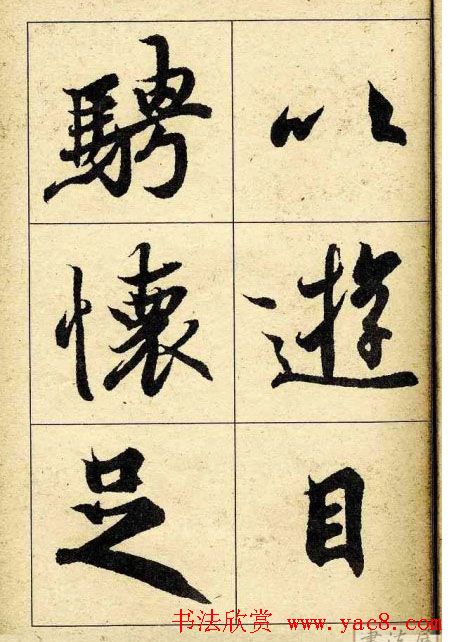 以遊目
騁懷足
书法欣赏 www.yac8.com